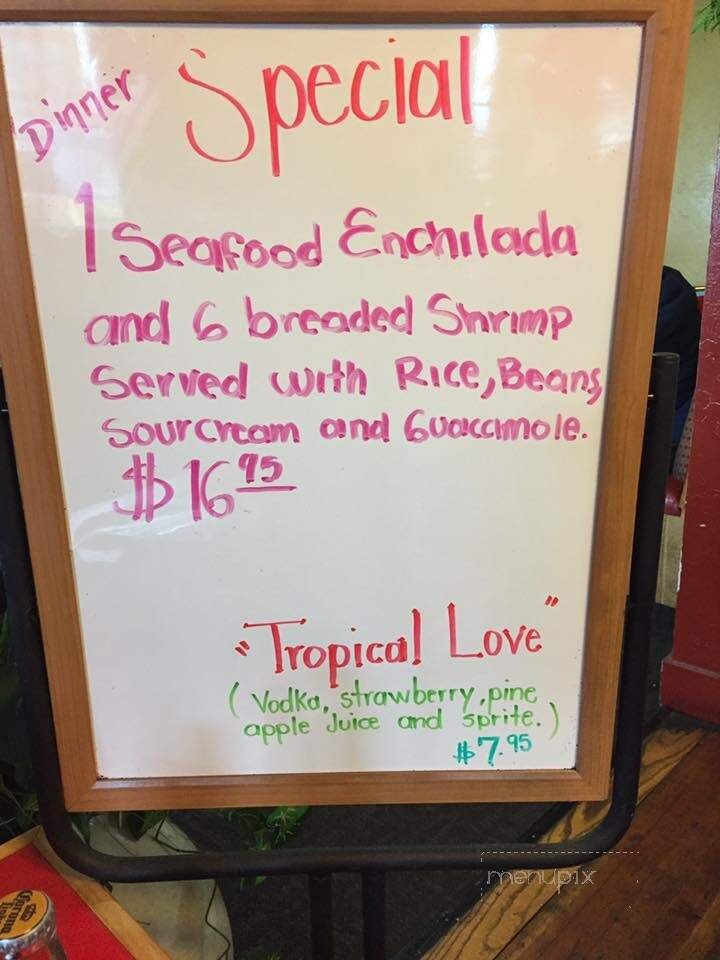 Dinner Special
1 Seafood Enchilada
and 6 breaded Shrimp
Served with Rice, Beans,
Sour Cream and Guaccimole.
$16 95
"Tropical Love"
(Vodka, strawberry, pine
apple Juice and sprite.)
$7.95
menupix
Corona